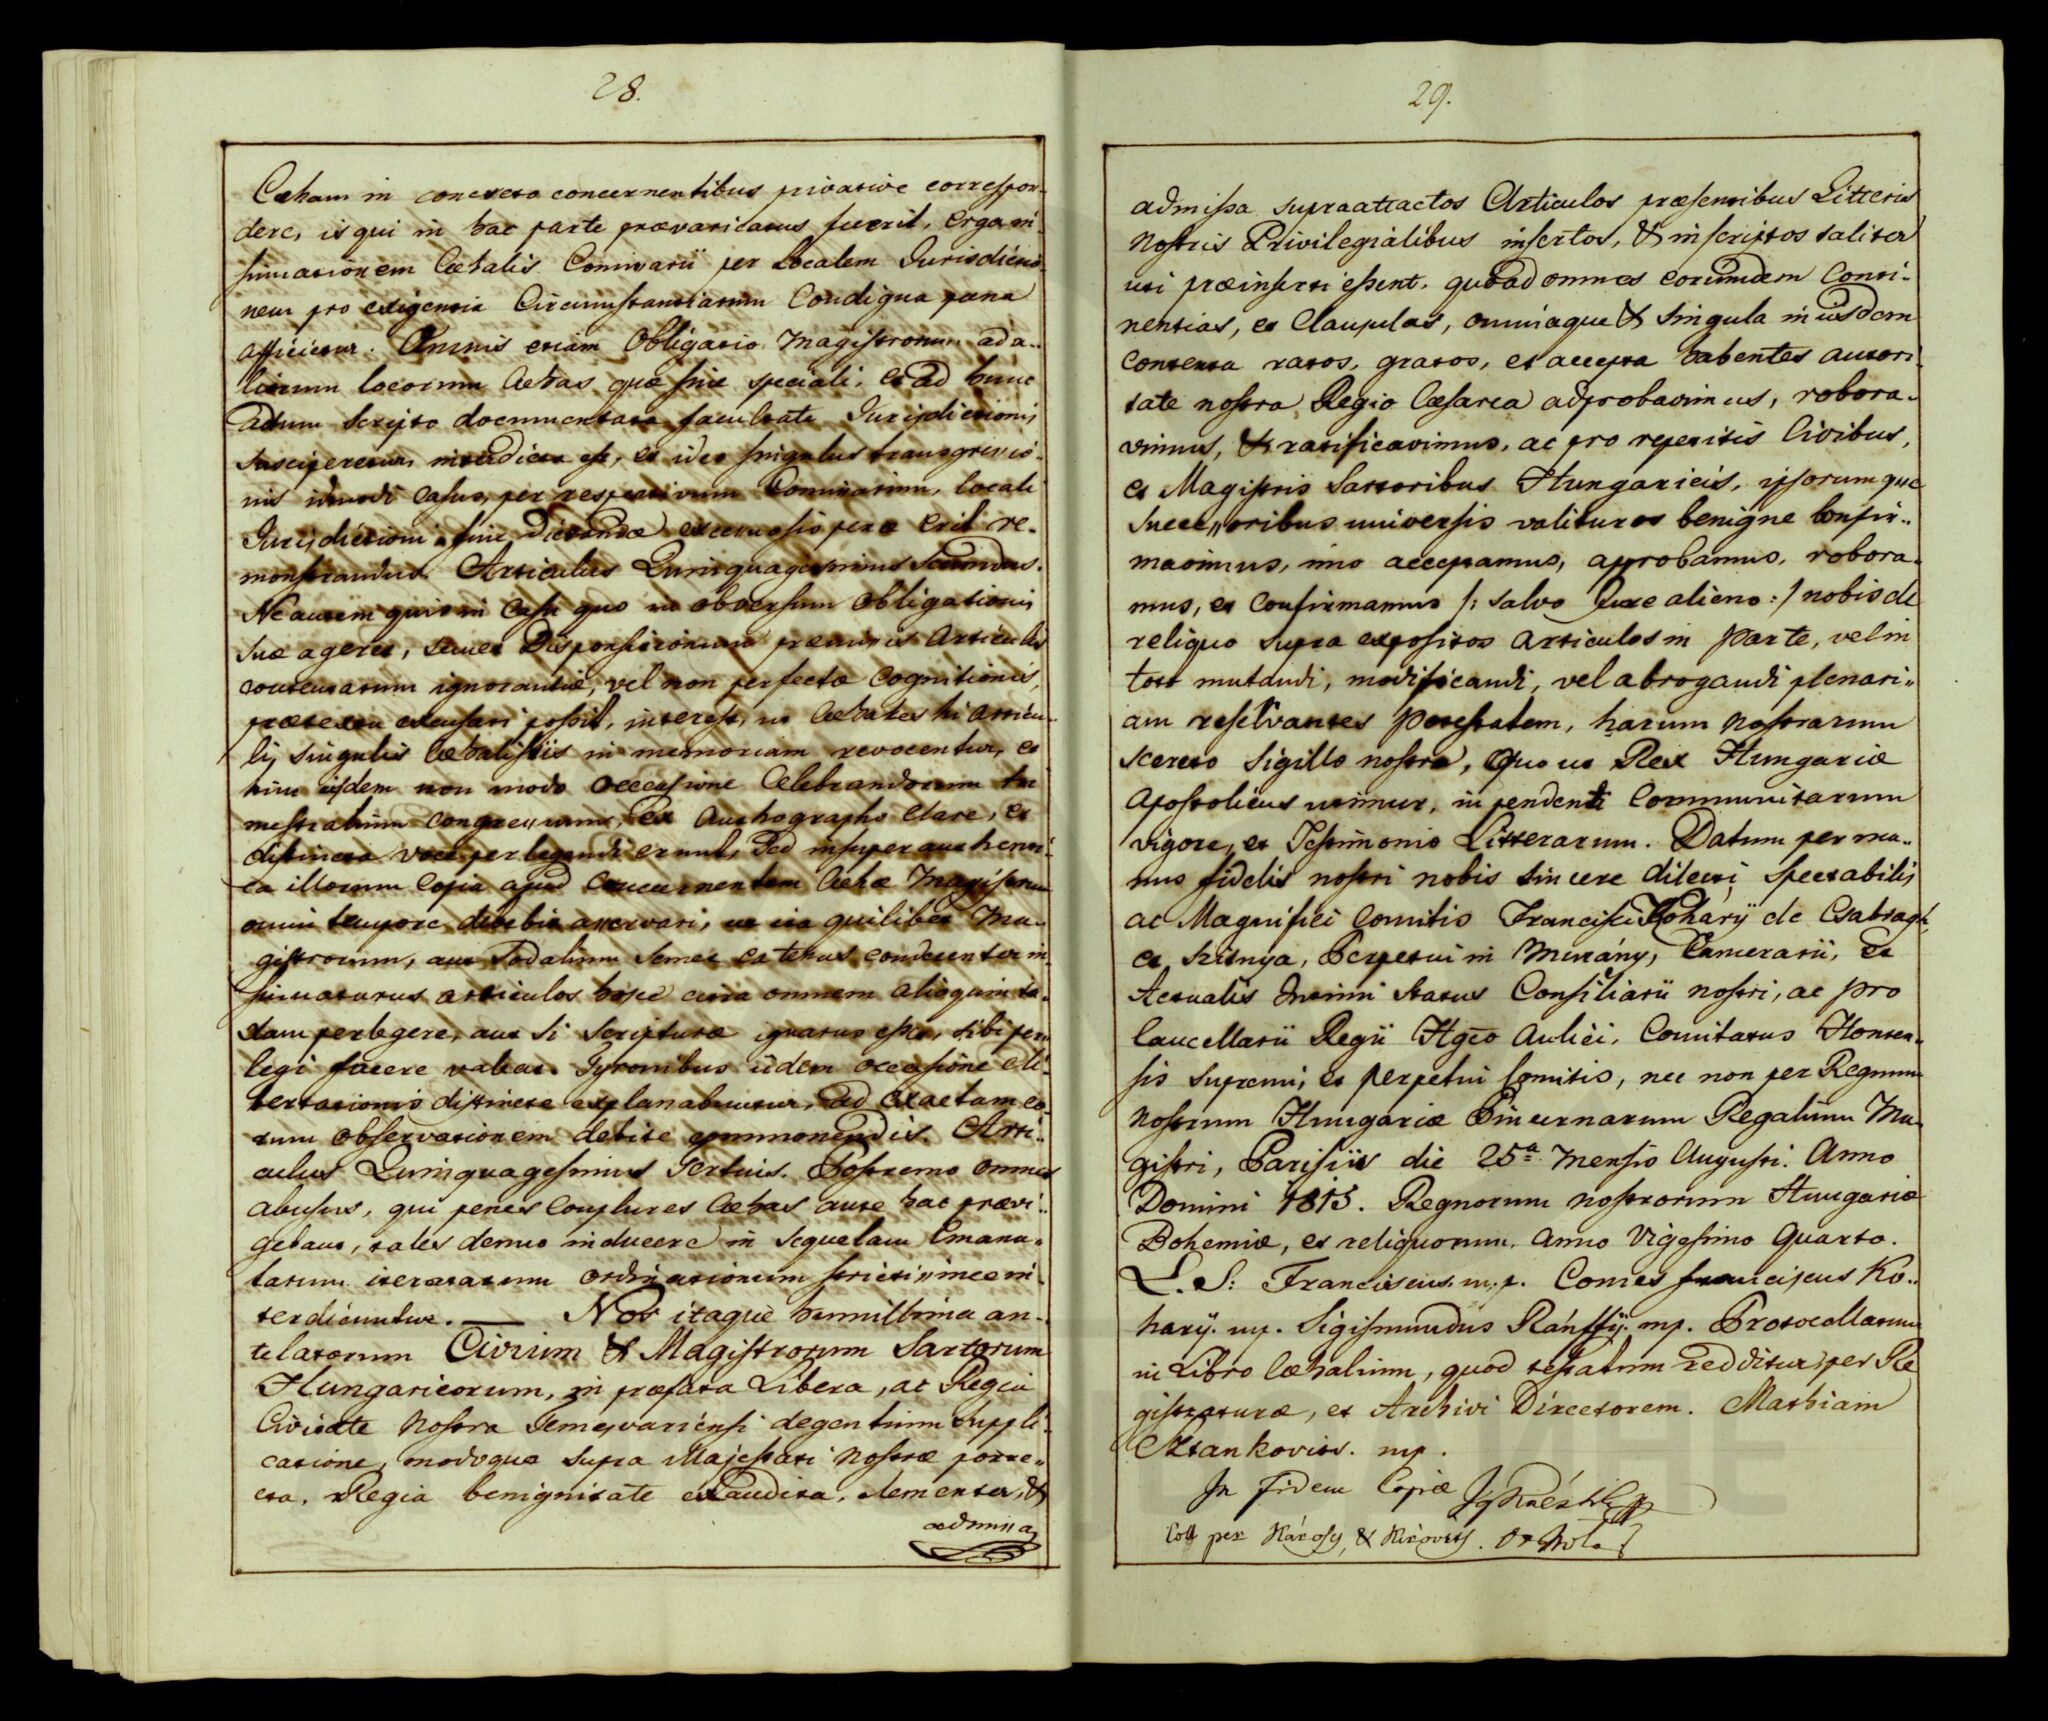 28.
Cæham in concreto concernentibus privative correspon-
dere, is qui in hac parte prævaricatus fuerit, erga in-
sinuationem Cæhalis Comissarii per Localem Jurisdictio-
nem pro exigentia Circumstantiarum Condigna pæna
afficietur. Omnis etiam Obligatio Magistrorum ad a-
liorum locorum Cæhas, quæ sine speciali, et ad hunc
actum scripto documentata facultate Jurisdictionis
susciperetur, interdicta est, et ideo singulus transgressio-
nis ejusmodi Casus, per respectivum Comissarium, locali
Jurisdictioni fine dictandæ pænæ erit re-
monstrandus. Articulus Quinquagesimus Secundus.
Ne autem quis in Casu quo in obversum Obligationis
suæ ageret, semet Dispositionum præmissis Articulis
contentarum ignorantiæ, vel non perfectæ Cognitionis,
prætextu excusari possit, interest, ut Cæhales hi Articu-
li, singulis Cæhalistis in memoriam revocentur, et
hinc iisdem non modo occasione Celebrandorum tri
mestralium Congressuum, ex Authographo Clare, et
distincta voce perlegendi erunt, Sed insuper authenti-
ca illorum Copia apud Concernentem Cæhæ Magistrum
omni tempore debebit asservari, ut ita quilibet Ma-
gistrorum, aut Sodalium semet eatenus condecenter in-
sinuaturus articulos hosce citra omnem alioquin ta-
xam perlegere, aut si Scripturæ ignarus esset, sibi per-
legi facere valeat. Tyronibus iidem occasione eli-
bertationis distincte explanabuntur, ad exactam eo-
rum observationem debite commonendis. Arti-
culus Quinquagesimus Tertius. Postremo omnes
abusus, qui penes Complures Cæhas ante hac prævi-
gebant, tales denuo inducere in sequelam Emana-
tarum iteratarum ordinationum strictissime in-
terdicuntur. — Nos itaque humillima an-
telatorum Civium & Magistrorum Sartorum
Hungaricorum, in præfata Libera, ac Regia
Civitate Nostra Temesvariensi degentium suppli-
catione, modoque supra Majestati Nostræ porre-
cta, Regia benignitate exaudita, clementer, &
admissa
29.
admissa supraattactos Articulos præsentibus Litteris
Nostris Privilegialibus insertos, & inscriptos taliter
uti præinserti essent, quoad omnes eorumdem Conti-
nentias, et Clausulas, omniaque & singula in iisdem
contenta ratos, gratos, et accepta habentes autori-
tate nostra Regio Cæsarea adprobavimus, robora-
vimus, & ratificavimus, ac pro repetitis Civibus,
et Magistris Sartoribus Hungaricis, ipsorumque
Successoribus universis valituros benigne Confir-
mavimus, imo acceptamus, approbamus, robora-
mus, et Confirmamus /: salvo Jure alieno :/ nobis de
reliquo supra expositos articulos in parte, vel in
toto mutandi, modificandi, vel abrogandi plenari-
am reservantes potestatem, harum Nostrarum
secreto Sigillo nostro, quo ut Rex Hungariæ
Apostolicus utimur, inpendenti Communitarum
vigore, et Testimonio Litterarum. Datum per ma-
nus fidelis nostri nobis sincere dilecti, Spectabilis
ac Magnifici Comitis Francisci Koháry de Csabragh,
et Szitnya, Perpetui in Murány, Camerarii, et
Actualis Intimi Status Consiliarii nostri, ac pro
Cancellarii Regii Hgco Aulici, Comitatus Honten-
sis Supremi, et perpetui Comitis, nec non per Regnum
Nostrum Hungariæ Pincernarum Regalium Ma-
gistri, Parisiis die 25ª Mensis Augusti. Anno
Domini 1815. Regnorum nostrorum Hungariæ
Bohemiæ, et reliquorum, Anno Vigesimo Quarto.
L. S: Franciscus. m. p. Comes franciscus Ko-
hary. mp. Sigismundus Bánffy. mp. Protocollatum
in Libro Cæhalium, quod testatum redditur, per Re
gistraturæ, et Archivi Directorem. Mathiam
Sztankovits. mp.
In Fidem Copiæ
Coll per Károsy, &